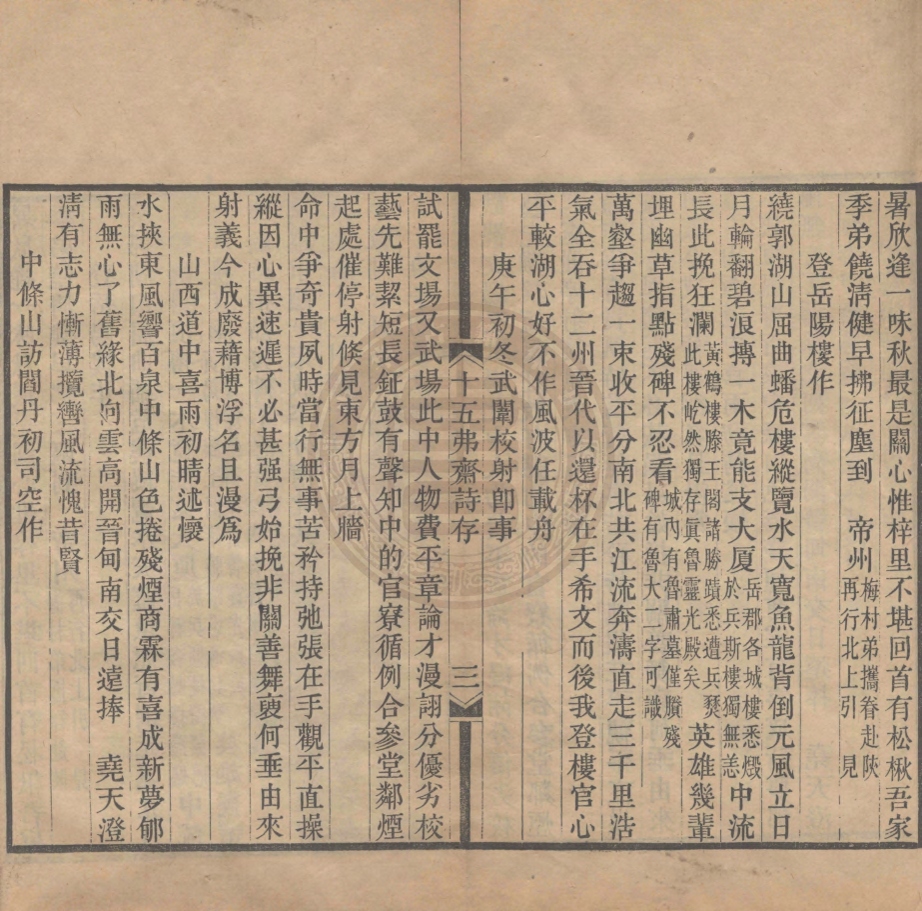 暑欣逢一味秋最是關心惟梓里不堪回首有松楸吾家
季弟饒淸健早拂征塵到　帝州梅村弟攜眷赴陝再行北上引　見
登岳陽樓作
繞郭湖山屈曲蟠危樓縱覽水天寬魚龍背倒元風立日
月輪翻碧浪摶一木竟能支大厦岳郡各城樓悉燬於兵斯樓獨無恙中流
長此挽狂瀾黃鶴樓滕王閣諸勝蹟悉遭兵燹此樓屹然獨存眞魯靈光殿矣英雄幾輩
埋幽草指點殘碑不忍看城內有魯肅墓僅賸殘碑有魯大二字可識
萬壑爭趨一束收平分南北共江流奔濤直走三千里浩
氣全吞十二州晉代以還杯在手希文而後我登樓官心
平較湖心好不作風波任載舟
庚午初冬武闈校射卽事
十五弗齋詩存
三
試罷文場又武場此中人物費平章論才漫詡分優劣校
藝先難絜短長鉦鼓有聲知中的官寮循例合參堂鄰煙
起處催停射倏見東方月上牆
命中爭奇貴夙時當行無事苦矜持弛張在手觀平直操
縱因心異速遲不必甚强弓始挽非關善舞袖何垂由來
射義今成廢藉博浮名且漫爲
山西道中喜雨初晴述懷
水挾東風響百泉中條山色捲殘煙商霖有喜成新夢郇
雨無心了舊緣北向雲高開晉甸南交日遠捧　堯天澄
淸有志力慚薄攬轡風流愧昔賢
中條山訪閻丹初司空作